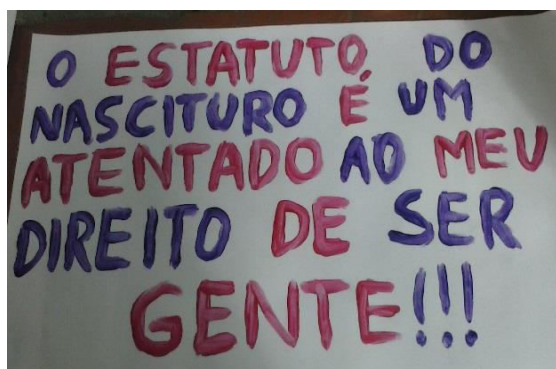 O ESTATUTO DO
NASCITURO É UM
ATENTADO AO MEU
DIREITO DE SER
GENTE!!!